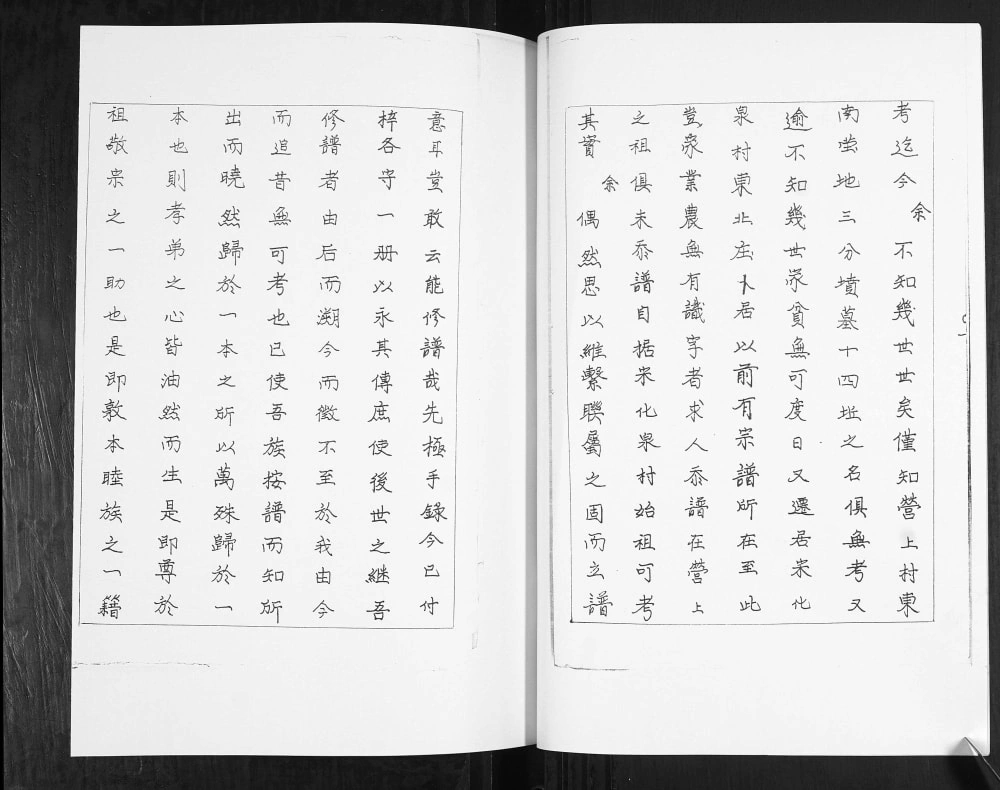 考迄今余不知幾世世矣僅知營上村東
南塋地三分墳墓十四坵之名俱無考又
逾不知幾世家貧無可度日又遷居崇化
泉村東北庄卜居以前有宗譜所在至此
豈家業農無有識字者求人忝譜在營上
之祖俱未忝譜自据崇化泉村始祖可考
其實余偶然思以維繫聯屬之固而立譜
意耳豈敢云能修譜哉先極手錄今已付
梓各守一册以永其傳庶使後世之継吾
修譜者由后而溯今而徵不至於我由今
而追昔無可考也已使吾族按譜而知所
出而曉然歸於一本之所以萬殊歸於一
本也則孝弟之心皆油然而生是即尊於
祖敬宗之一助也是即敦本睦族之一籍